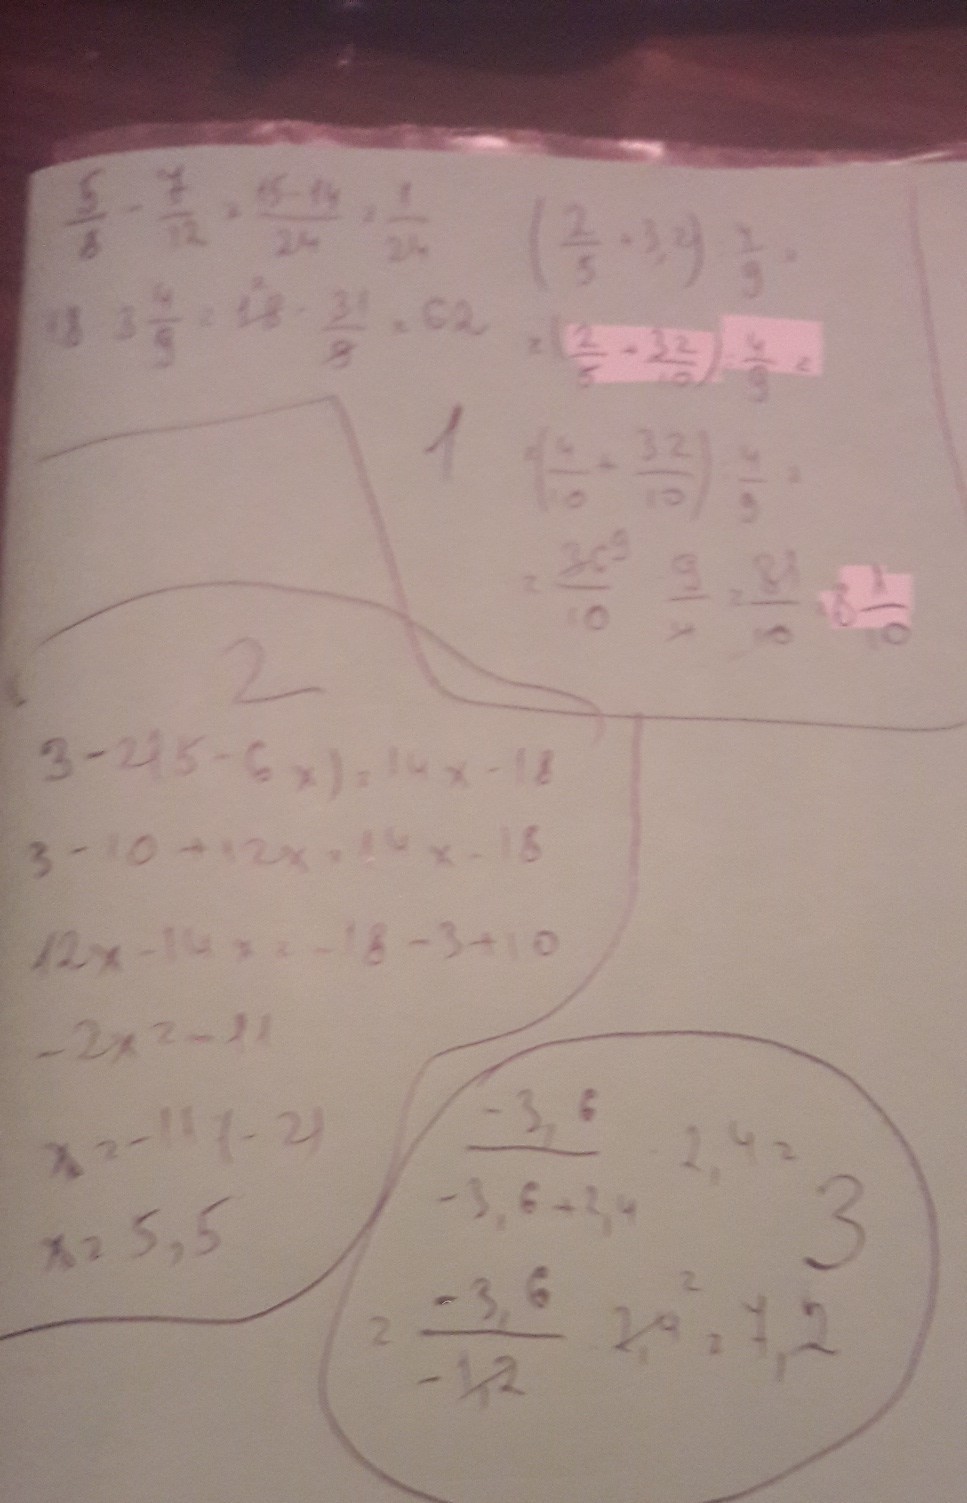 5/8 - 7/12 = 15-14/24 = 1/24
18 3 4/9 = 18² · 31/9 = 62
1
(2/5 + 3,2) : 4/9 =
= (2/5 + 32/10) : 4/9 =
(4/10 + 32/10) : 4/9 =
= 36⁹/10 · 9/4 = 81/10 = 8 1/10
2
3 - 2(5 - 6x) = 14x - 18
3 - 10 + 12x = 14x - 18
12x - 14x = -18 - 3 + 10
-2x = -11
x = -11 : (-2)
x = 5,5
3
-3,6/-3,6+2,4 · 2,4 =
= -3,6/-1,2 · 2,4² = 7,2